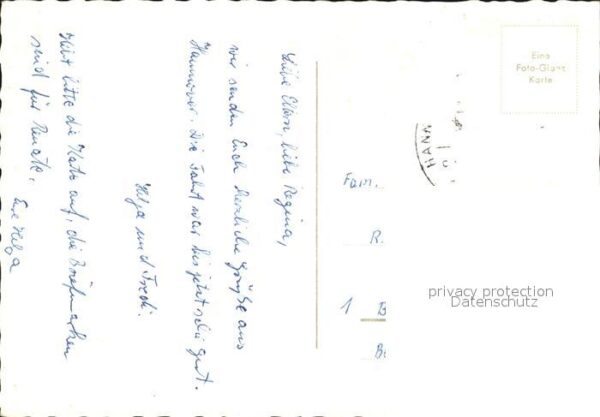 Liebe Eltern, liebe Regina,
wir senden Euch herzliche Grüße aus
Hannover. Die Fahrt war bis jetzt sehr gut.
Helga und
Hebt bitte die Karte auf, die Briefmarken
sind für Renate.
Eure Helga
Eine
Foto-Glanz
Karte
HANN
Fam.
R.
1 B
privacy protection
Datenschutz